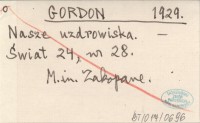 GORDON 1929.
Nasze uzdrowiska. —
Świat 24, nr 28.
M.in. Zakopane.